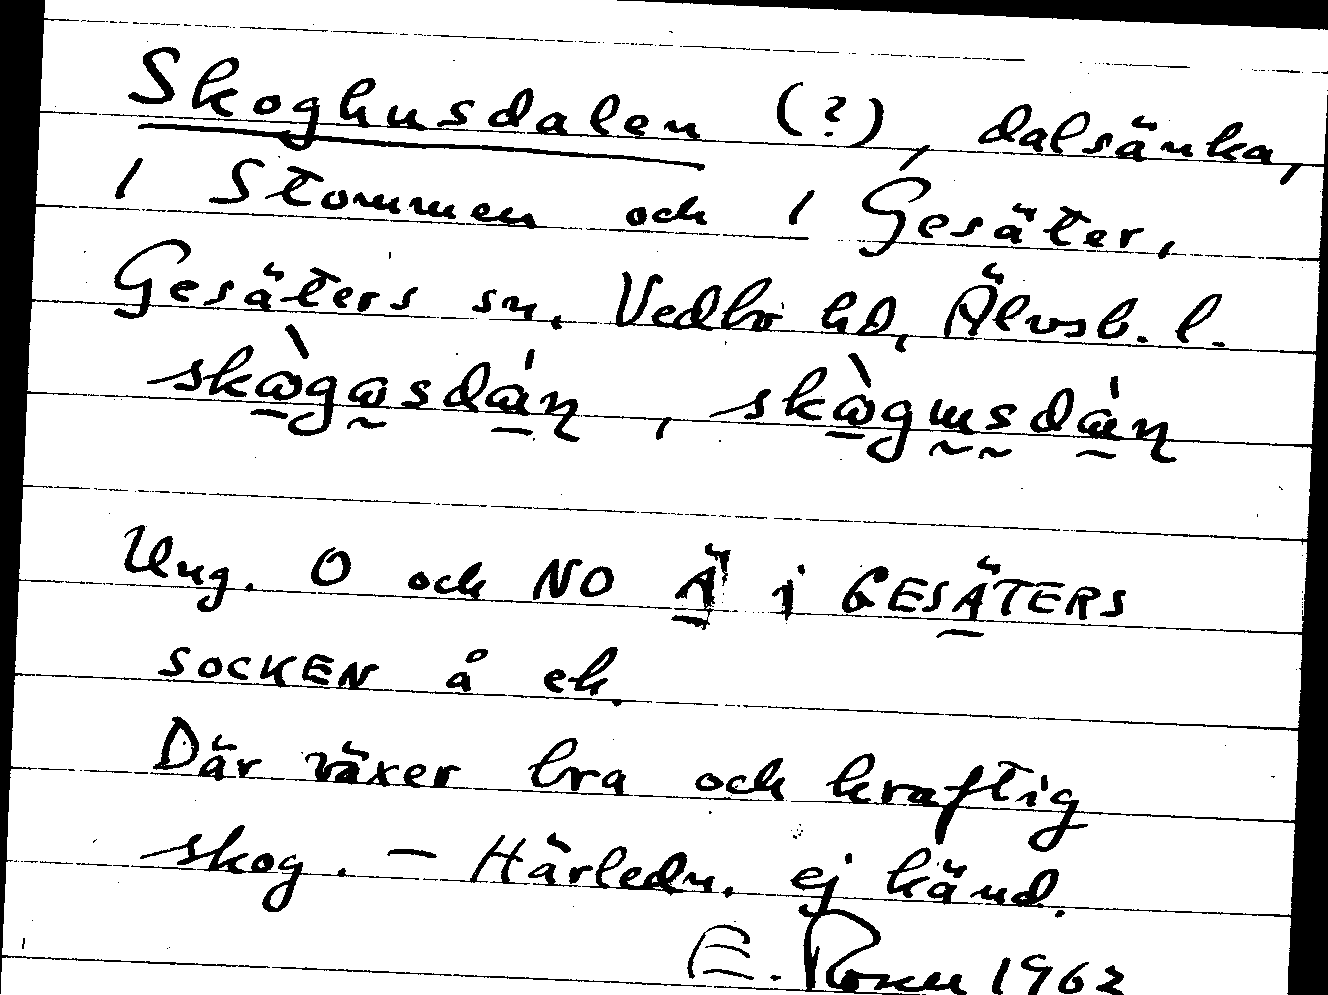 Skoghusdalen (?), dalsänka,
1 Stommen och 1 Gesäter,
Gesäters sn. Vedbo hd, Älvsb. l.
Ung. O och NO Ä i GESÄTERS
SOCKEN å ek.
Där växer bra och kraftig
skog. – Härledn. ej känd.
E. Rosén 1962